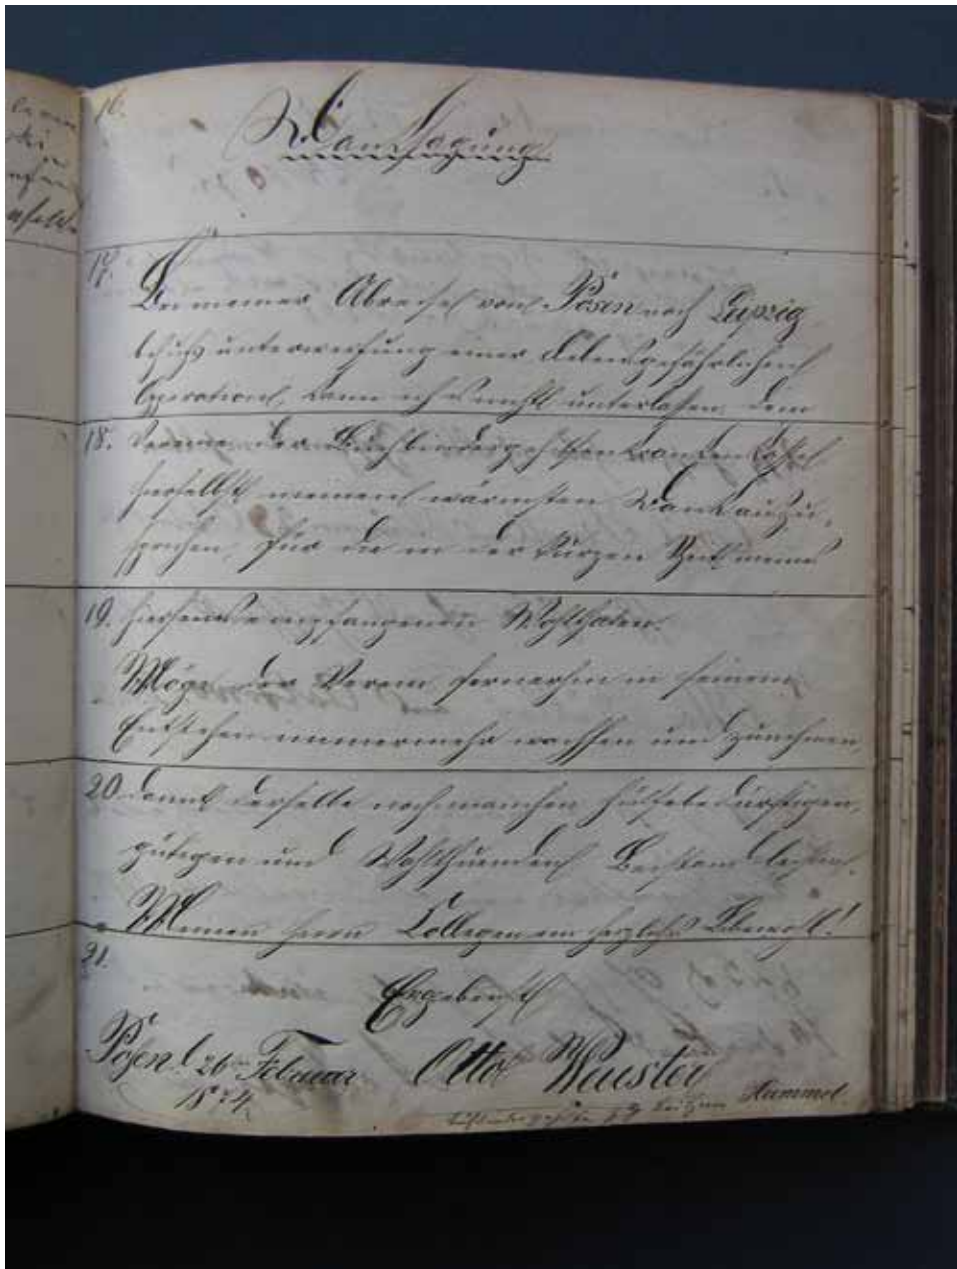 16.
Danksagung
17.
Bei meiner Abreise von Posen nach Leipzig
behufs unterwerfung einer lebensgefährlichen
Operation, kann ich nicht unterlassen, dem
18. Vereine der Buchbindergehilfen
hierselbst meinen wärmsten Dank auszu-
sprechen, für die in der kurzen Zeit meines
19. Hierseins empfangenen Wohlthaten.
Möge der Verein fernerhin in seinem
Entstehen immermehr wachsen und zunehmen,
20 damit derselbe noch manchen hülfebedürftigen,
gütigen und Wohlthuenden Beistand leistet.
Meinen Herrn Collegen ein herzliches Lebewohl!
21.
Ergebenst
Posen d. 26ten Februar Otto Wuester
1874.
Buchbindergehilfe Hammel